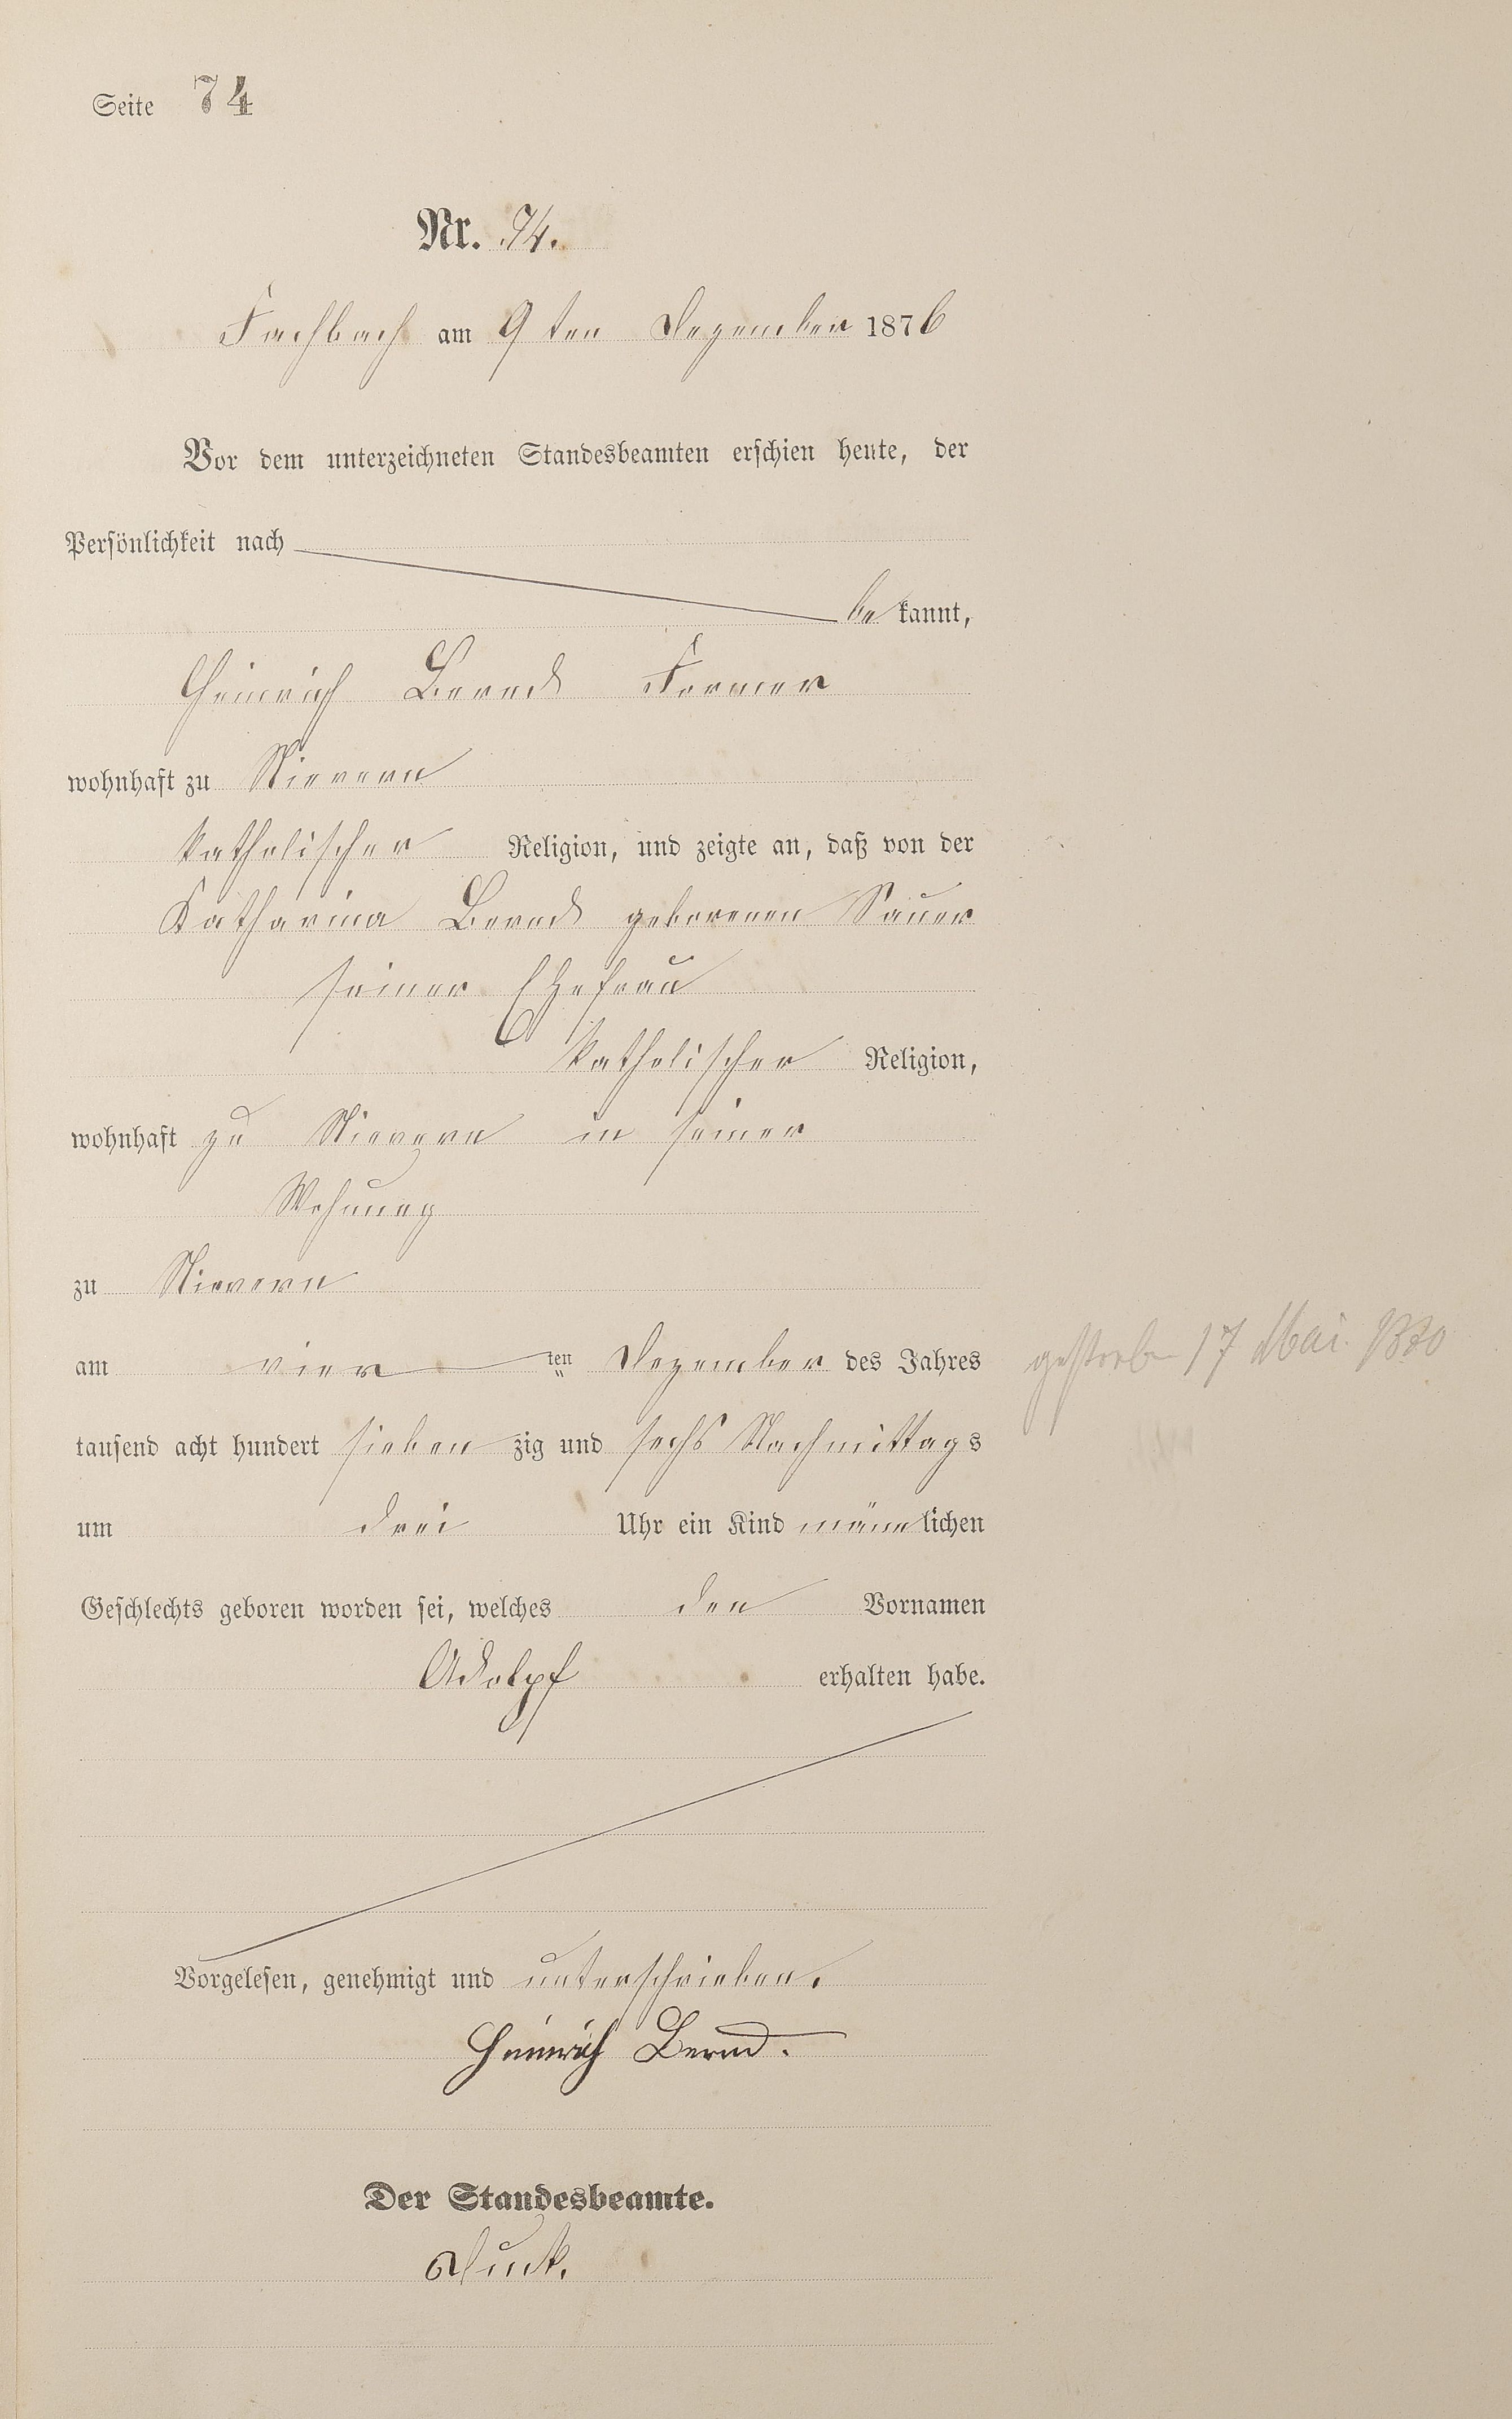 Seite 74
Nr. 74.
Fachbach am 9ten Dezember 1876
Vor dem unterzeichneten Standesbeamten erschien heute, der
Persönlichkeit nach
bekannt,
Heinrich Bernd Former
wohnhaft zu Nievern
katholischer Religion, und zeigte an, daß von der
Katharina Bernd geborenen Sauer
seiner Ehefrau
katholischer Religion,
wohnhaft zu Nievern in seiner
Wohnung
zu Nievern
am vier ten Dezember des Jahres
gestorben 17 Mai
tausend acht hundert sieben zig und sechs Nachmittags
um drei Uhr ein Kind männlichen
Geschlechts geboren worden sei, welches den Vornamen
Adolpf erhalten habe.
Vorgelesen, genehmigt und unterschrieben.
Heinrich Bernd.
Der Standesbeamte.